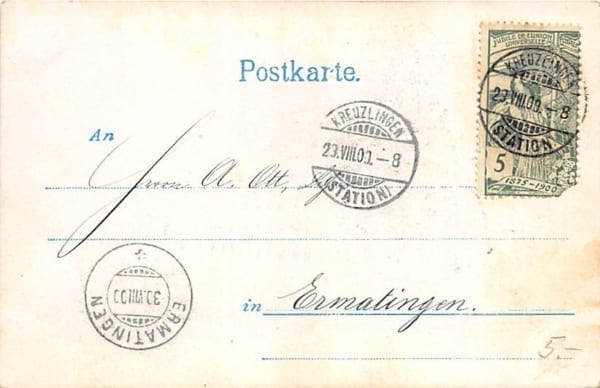 JUBILÉ DE L'UNION
UNIVERSELLE
5
1875-1900
KREUZLINGEN
29.VIII.00.-8
(STATION)
Postkarte.
KREUZLINGEN
29.VIII.00.-8
(STATION)
An
Herrn A. Ott,
ERMATINGEN
30.VIII.00
in Ermatingen.
5.-